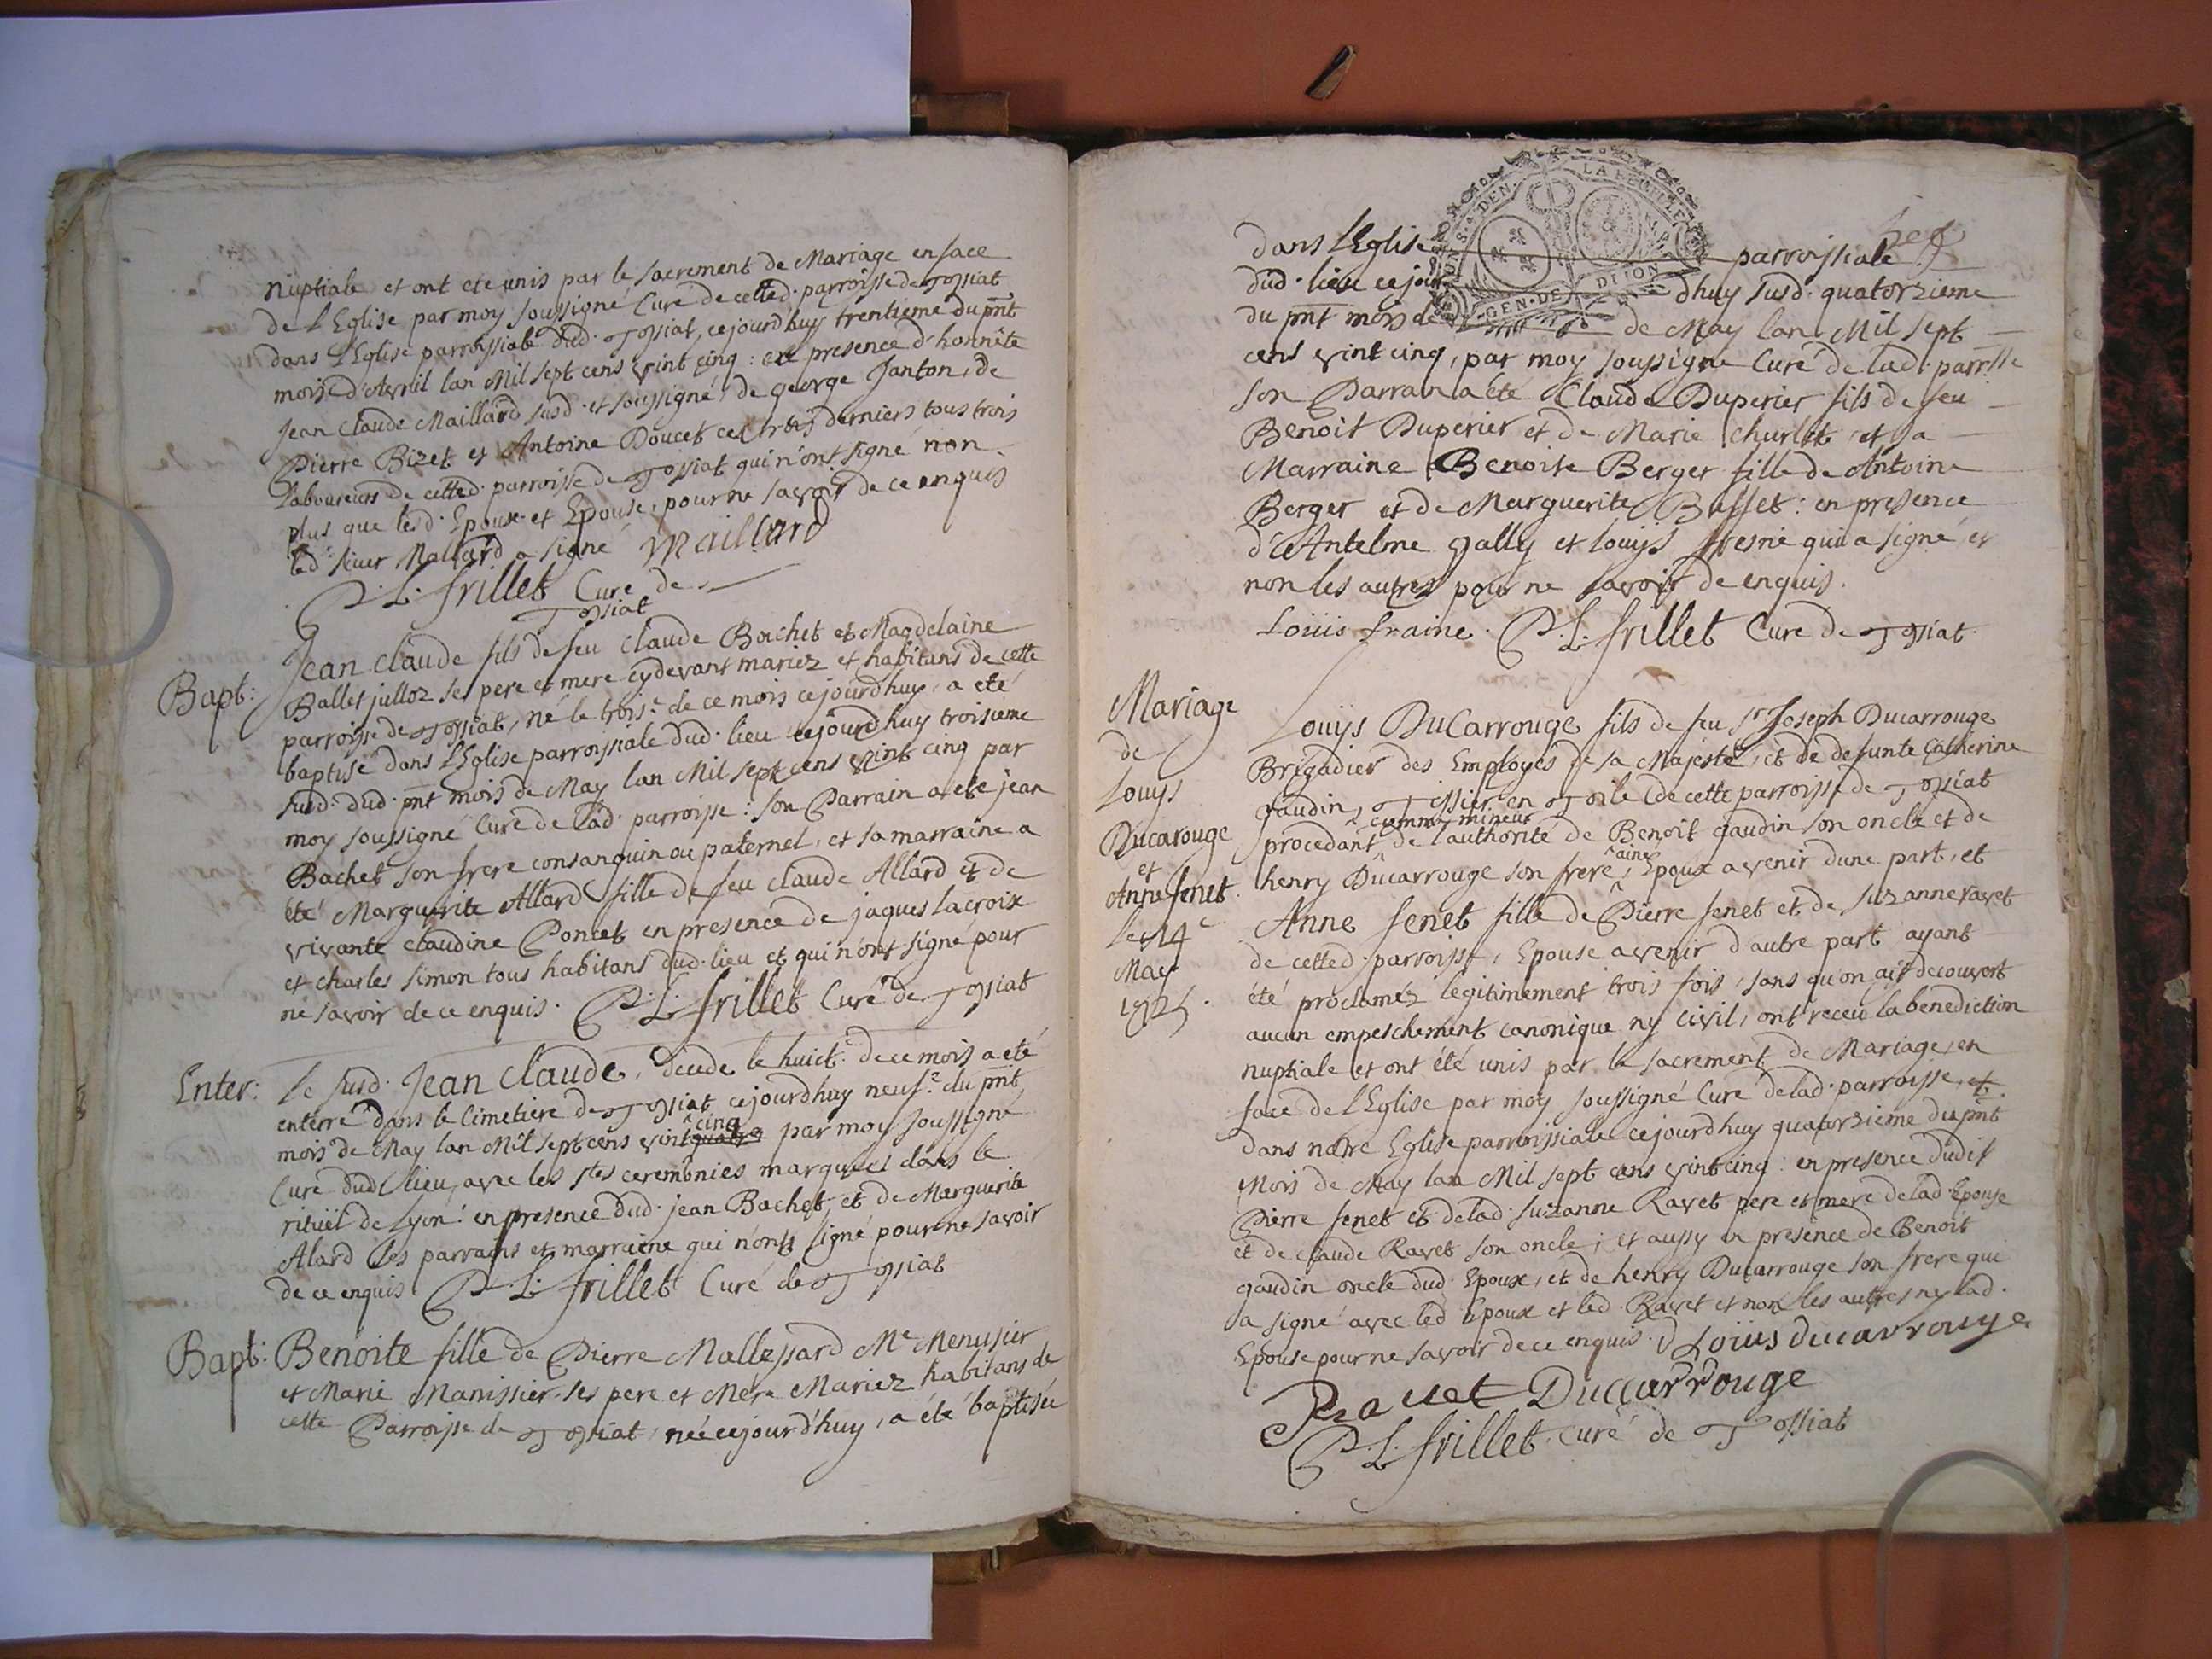 nuptiale et ont eté unis par le sacrement de Mariage en face
de l'Eglise par moy soussigné Curé de cetted. parroisse de Tossiat
dans l'Eglise parroissiale dud. Tossiat, cejourdhuy trentieme du pnt
mois d'Avril lan Mil sept cens vint cinq : en presence d'honnête
Jean Claude Maillard susd. et soussigné, de George Janton, de
Pierre Bizet et Antoine Doucet ces trois derniers tous trois
laboureurs de cetted. parroisse de Tossiat qui n'ont signé non
plus que lesd. Epoux et Epouse, pour ne savoir de ce enquis
led. sieur Mallard a signé Maillard
P. L. frillet Curé de
Tossiat
Bapt:
Jean claude fils de feu Claude Bachet et Magdelaine
Ballet julloz ses pere et mere cydevant mariez et habitans de cette
parroisse de Tossiat, né le trois.e de ce mois cejourdhuy, a eté
baptisé dans l'Eglise parroissiale dud. lieu cejourdhuy troisieme
susd. dud. pnt mois de May lan Mil sept cens vint cinq par
moy soussigné Curé de lad. parroisse : son Parrain a eté jean
Bachet son frere consanguin ou paternel, et sa marraine a
été Marguerite Allard fille de feu claude Allard et de
vivante claudine Poncet en presence de jaques lacroix
et charles simon tous habitans dud. lieu et qui n'ont signé pour
ne savoir de ce enquis. P. L. frillet Curé de Tossiat
Enter:
Le susd. Jean Claude, décedé le huict. de ce mois a eté
enterré dans le Cimetiere de Tossiat cejourdhuy neuf.e du pnt
cinq
mois de May lan Mil sept cens vint quatre par moy soussigné
Curé dud. lieu, avec les stes ceremonies marquées dans le
rituël de Lyon : en presence dud. jean Bachet, et de Marguerite
Alard les parrains et marraine qui n'ont signé pour ne savoir
de ce enquis P. L. frillet Curé de Tossiat
Bapt:
Benoite fille de Pierre Mallessard Me Menusier
et Marie Manissier ses pere et Mere Mariez habitans de
cette Parroisse de Tossiat, née cejourd'huy, a été baptisée
dans l'Eglise parroissiale
dud. lieu cejour dhuy susd. quatorzieme
du pnt mois de de May lan Mil sept
cens vint cinq, par moy soussigné Curé de lad. parrsse
son Parrain a eté Claude Duperier fils de feu
Benoit Duperier et de Marie churlet et sa
Marraine Benoite Berger fille de Antoine
Berger et de Marguerite Buffet : en presence
d'Antelme Gally et louijs fresne qui a signé et
non les autres pour ne savoir de enquis.
Loüis fraine. P. L. frillet Curé de Tossiat
Mariage
de
Louys
Ducarouge
et
Anne Senet
le 14e
May
1725.
Louijs DuCarrouge fils de feu Sr Joseph Ducarrouge
Brigadier des Employés de sa Majesté, et de defunte Catherine
gaudin, Tissier en Toile de cette parroisse de Tossiat
comme mineur
procedant de l'authorité de Benoit gaudin son oncle et de
ainé
henry Ducarrouge son frere, Epoux avenir dune part, et
Anne Senet fille de Pierre Senet et de Suzanne ravet
de cetted. parroisse, Epouse avenir d'autre part ayant
été proclaméz legitimement trois fois, sans qu'on ait decouvert
aucun empeschement canonique ny civil, ont receu la benediction
nuptiale et ont été unis par le sacrement de Mariage, en
face de l'Eglise par moy soussigné Curé de lad. parroisse, et
dans notre Eglise parroissiale cejourdhuy quatorzieme du pnt
Mois de May lan Mil sept cens vint cinq : en presence dudit
Pierre Senet et de lad. Suzanne Ravet pere et mere de lad. Epouse
et de Claude Ravet son oncle ; et aussy en presence de Benoit
gaudin oncle dud. Epoux, et de henry Ducarrouge son frere qui
a signé avec led. Epoux et led. Ravet et non les autres ny lad.
Epouse pour ne savoir de ce enquis. Loüis ducarrouge
Ravet Ducarrouge
P. L. frillet Curé de Tossiat